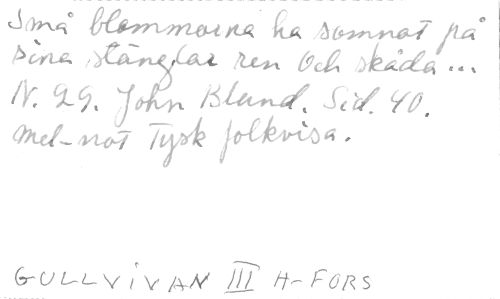 Små blommorna ha somnat på
sina stänglar ren Och skåda...
N. 29. John Blund. Sid. 40.
mel-not Tysk folkvisa.
GULLVIVAN III H-FORS